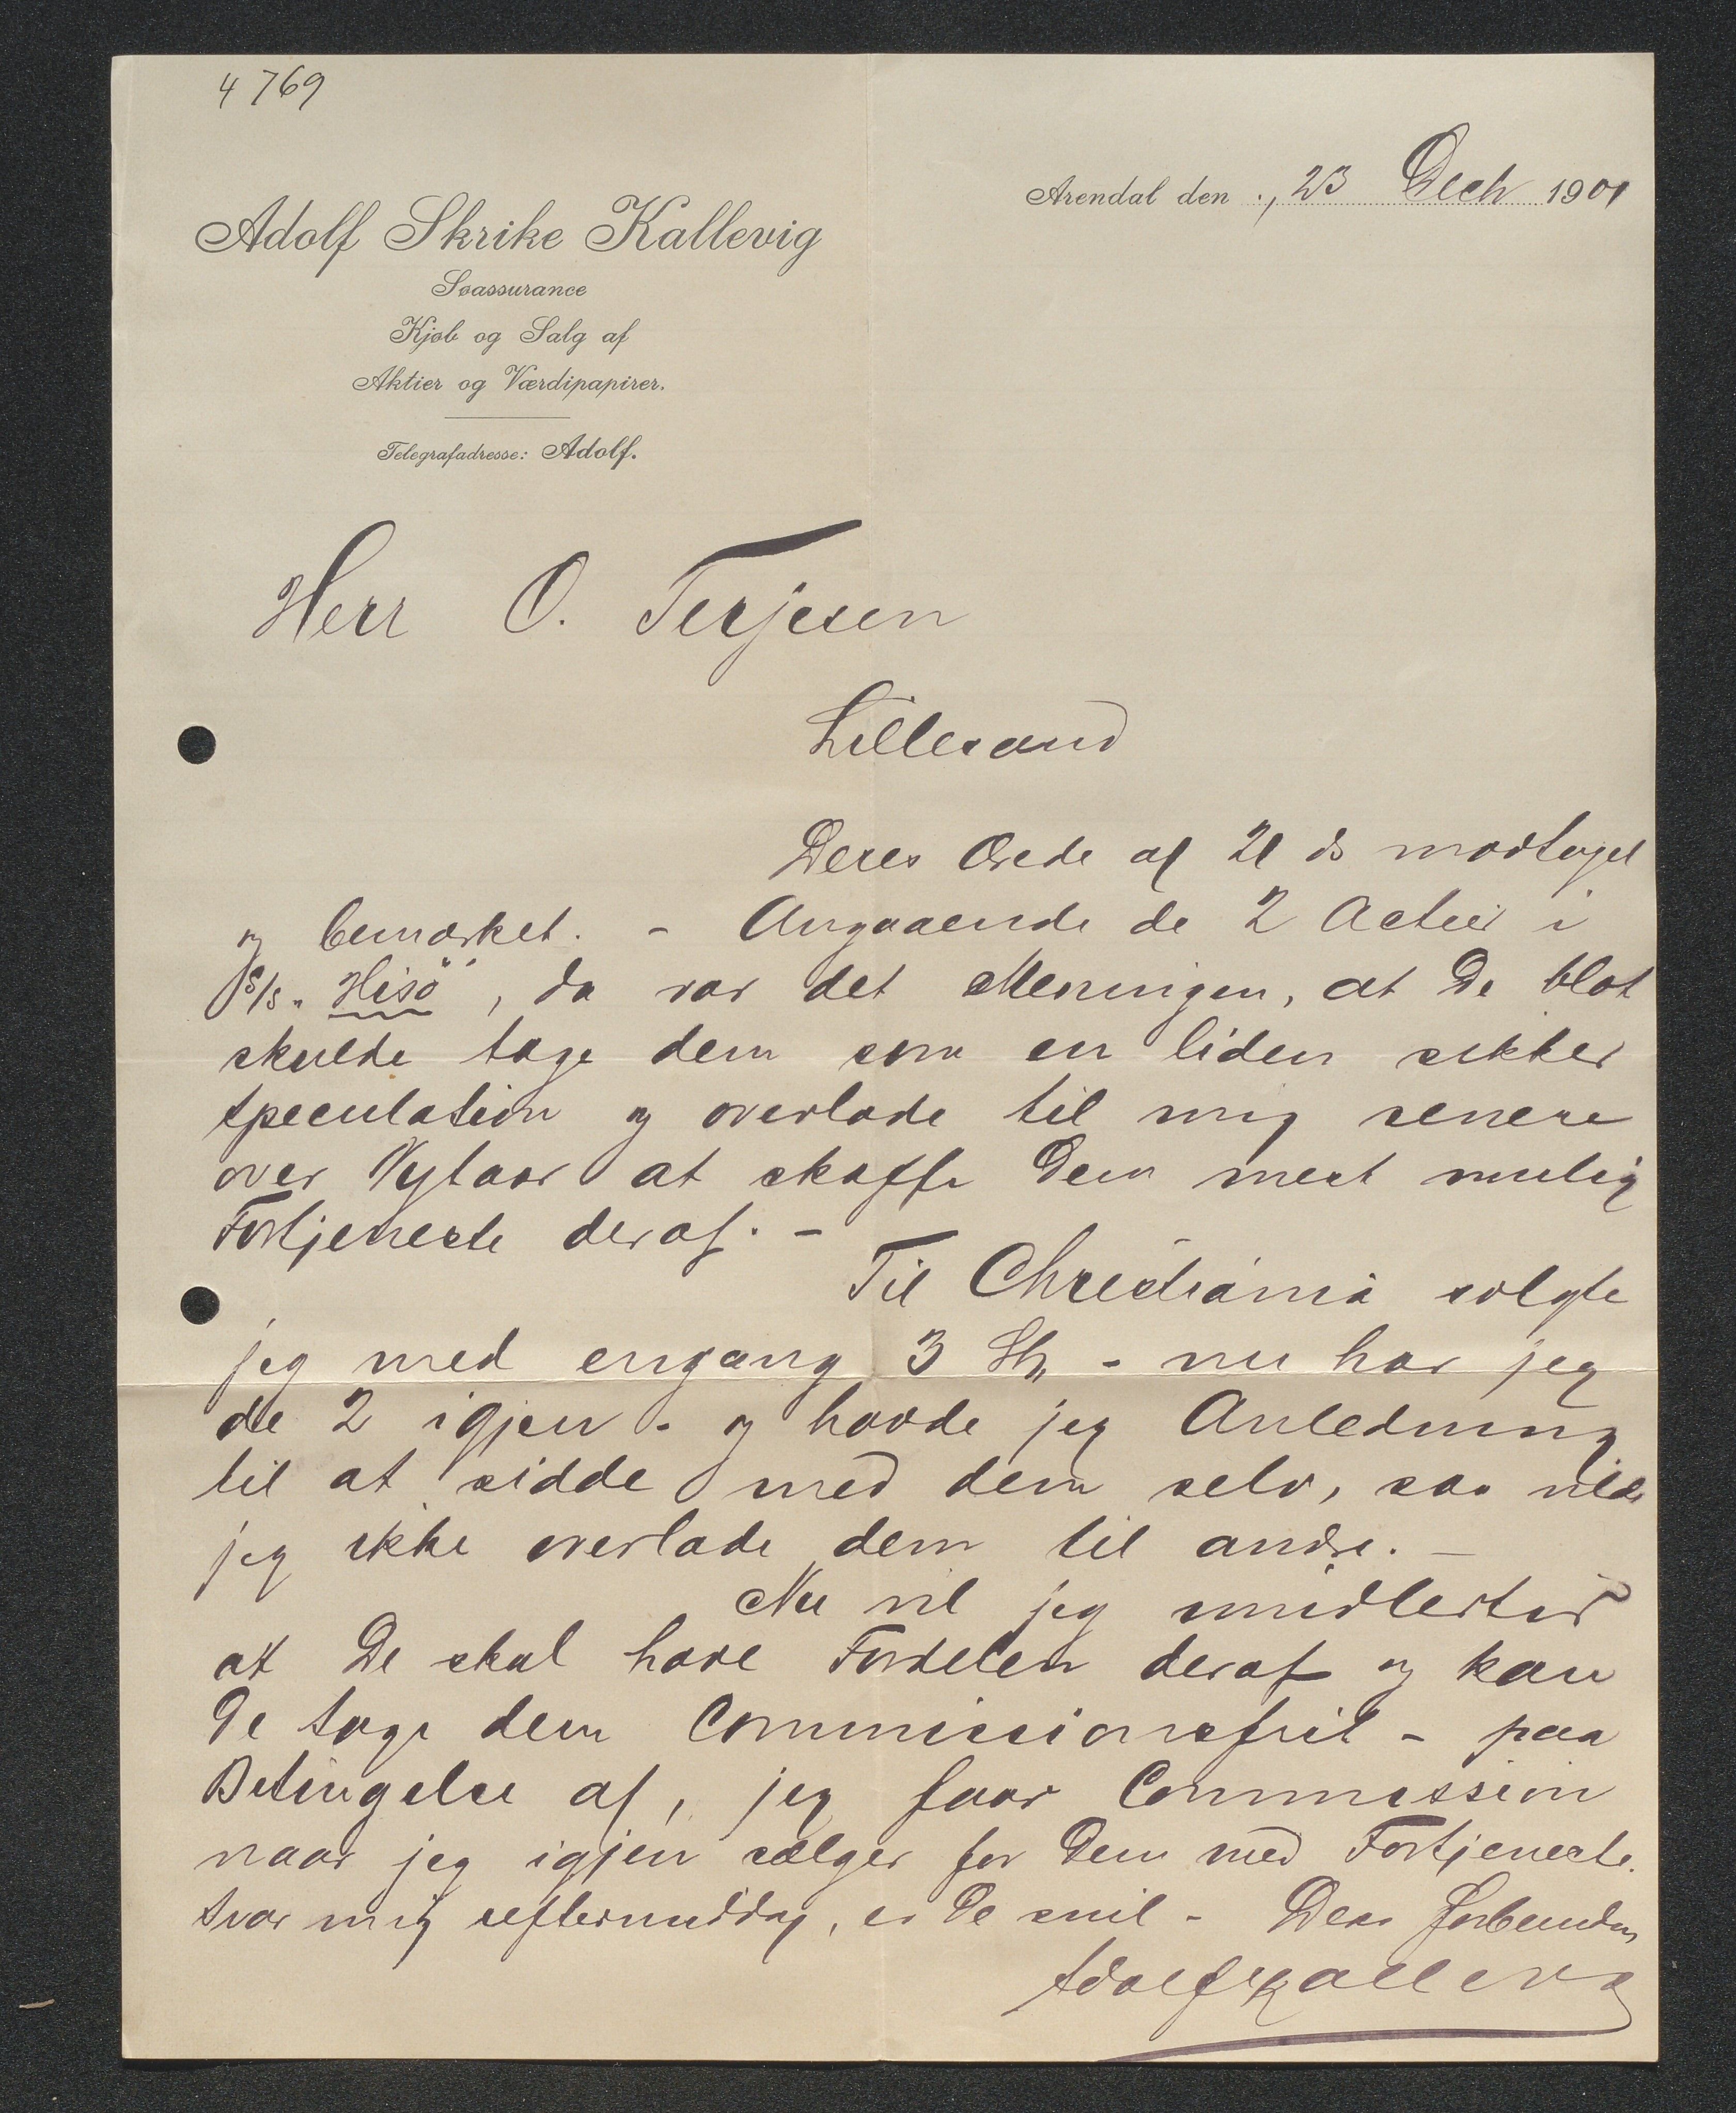 4769
Arendal den ., 23 Decb 1901
Adolf Skrike Kallevig
Søassurance
Kjøb og Salg af
Aktier og Værdipapirer.
Telegrafadresse: Adolf.
Herr O. Terjesen
Lillesand
Deres Ærede af 21 ds modtaget
og bemærket. - Angaaende de 2 Actier i
S/S. "Hisö", da var det Meningen, at De blot
skulde tage dem som en liden sikker
speculation og overlade til mig senere
over Nytaar at skaffe Dem mest mulig
Fortjeneste deraf. -
Til Christiania solgte
jeg med engang 3 Sh. - nu har jeg
de 2 igjen - og havde jeg Anledning
til at sidde med dem selv, saa vilde
jeg ikke overlade dem til andre. -
Nu vil jeg imidlertid
at De skal have Fordelen deraf og kan
De tage dem Commissionsfrit - paa
Betingelse af, jeg faar Commission
naar jeg igjen sælger for Dem med Fortjeneste.
Svar mig eftermiddag, er De snil - Deres forbundne
Adolf Kallevig